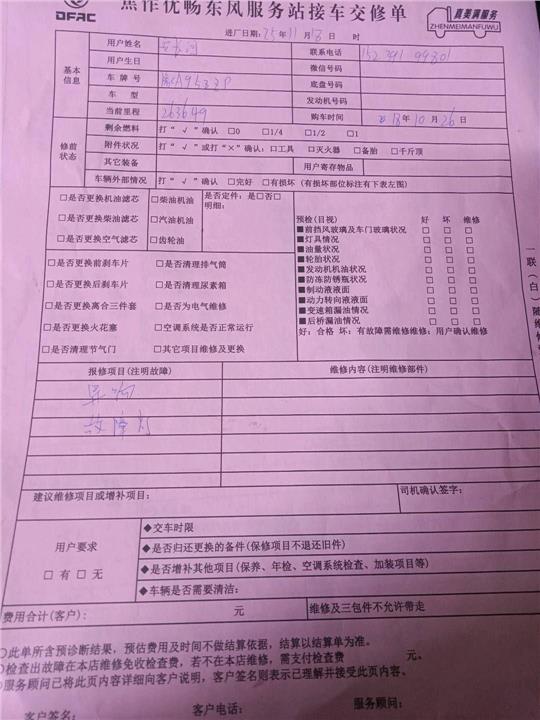 DFAC
焦作优畅东风服务站接车交修单
真美满服务
ZHENMEIMANFUWU
进厂日期: 25年11月13日 时
基本信息
用户姓名
联系电话
用户生日
微信号码
车牌号
底盘号码
车 型
发动机号码
当前里程 263649
购车时间 18年10月26日
修前状态
剩余燃料 打“√”确认 □0 □1/4 □1/2 □1
附件状况 打“√”或打“×”确认: □工具 □灭火器 □备胎 □千斤顶
其它装备
用户寄存物品
车辆外部情况 打“√”确认 □完好 □有损坏 (有损坏部位标注有下表左图)
□是否更换机油滤芯 □柴油机油 是否定件: 是□否□
明细:
□是否更换柴油滤芯 □汽油机油
□是否更换空气滤芯 □齿轮油
□是否更换前刹车片 □是否清理排气筒
□是否更换后刹车片 □是否清理尿素箱
□是否更换离合三件套 □是否为电气维修
□是否更换火花塞 □空调系统是否正常运行
□是否清理节气门 □其它项目维修及更换
预检(目视) 好 坏 维修
■前挡风玻璃及车门玻璃状况 □ □ □
■灯具情况 □ □ □
■油量状况 □ □ □
■轮胎状况 □ □ □
■发动机机油状况 □ □ □
■防冻防锈瓶状况 □ □ □
■制动液液面 □ □ □
■动力转向液液面 □ □ □
■变速箱漏油情况 □ □ □
■后桥漏油情况 □ □ □
好: 合格 坏: 有故障需维修维修: 用户确认维修
一联(白)随维修
报修项目(注明故障)
维修内容(注明维修部件)
异响
故障灯
建议维修项目或增补项目:
司机确认签字:
用户要求
□有 □无
◆交车时限
◆是否归还更换的备件(保修项目不退还旧件)
◆是否增补其他项目(保养、年检、空调系统检查、加装项目等)
◆车辆是否需要清洁:
费用合计(客户): 元
维修及三包件不允许带走
○此单所含预诊断结果，预估费用及时间不做结算依据，结算以结算单为准。
○检查出故障在本店维修免收检查费，若不在本店维修，需支付检查费 元。
○服务顾问已将此页内容详细向客户说明，客户签名则表示已理解并接受此页内容。
客户签名: 客户电话: 服务顾问: